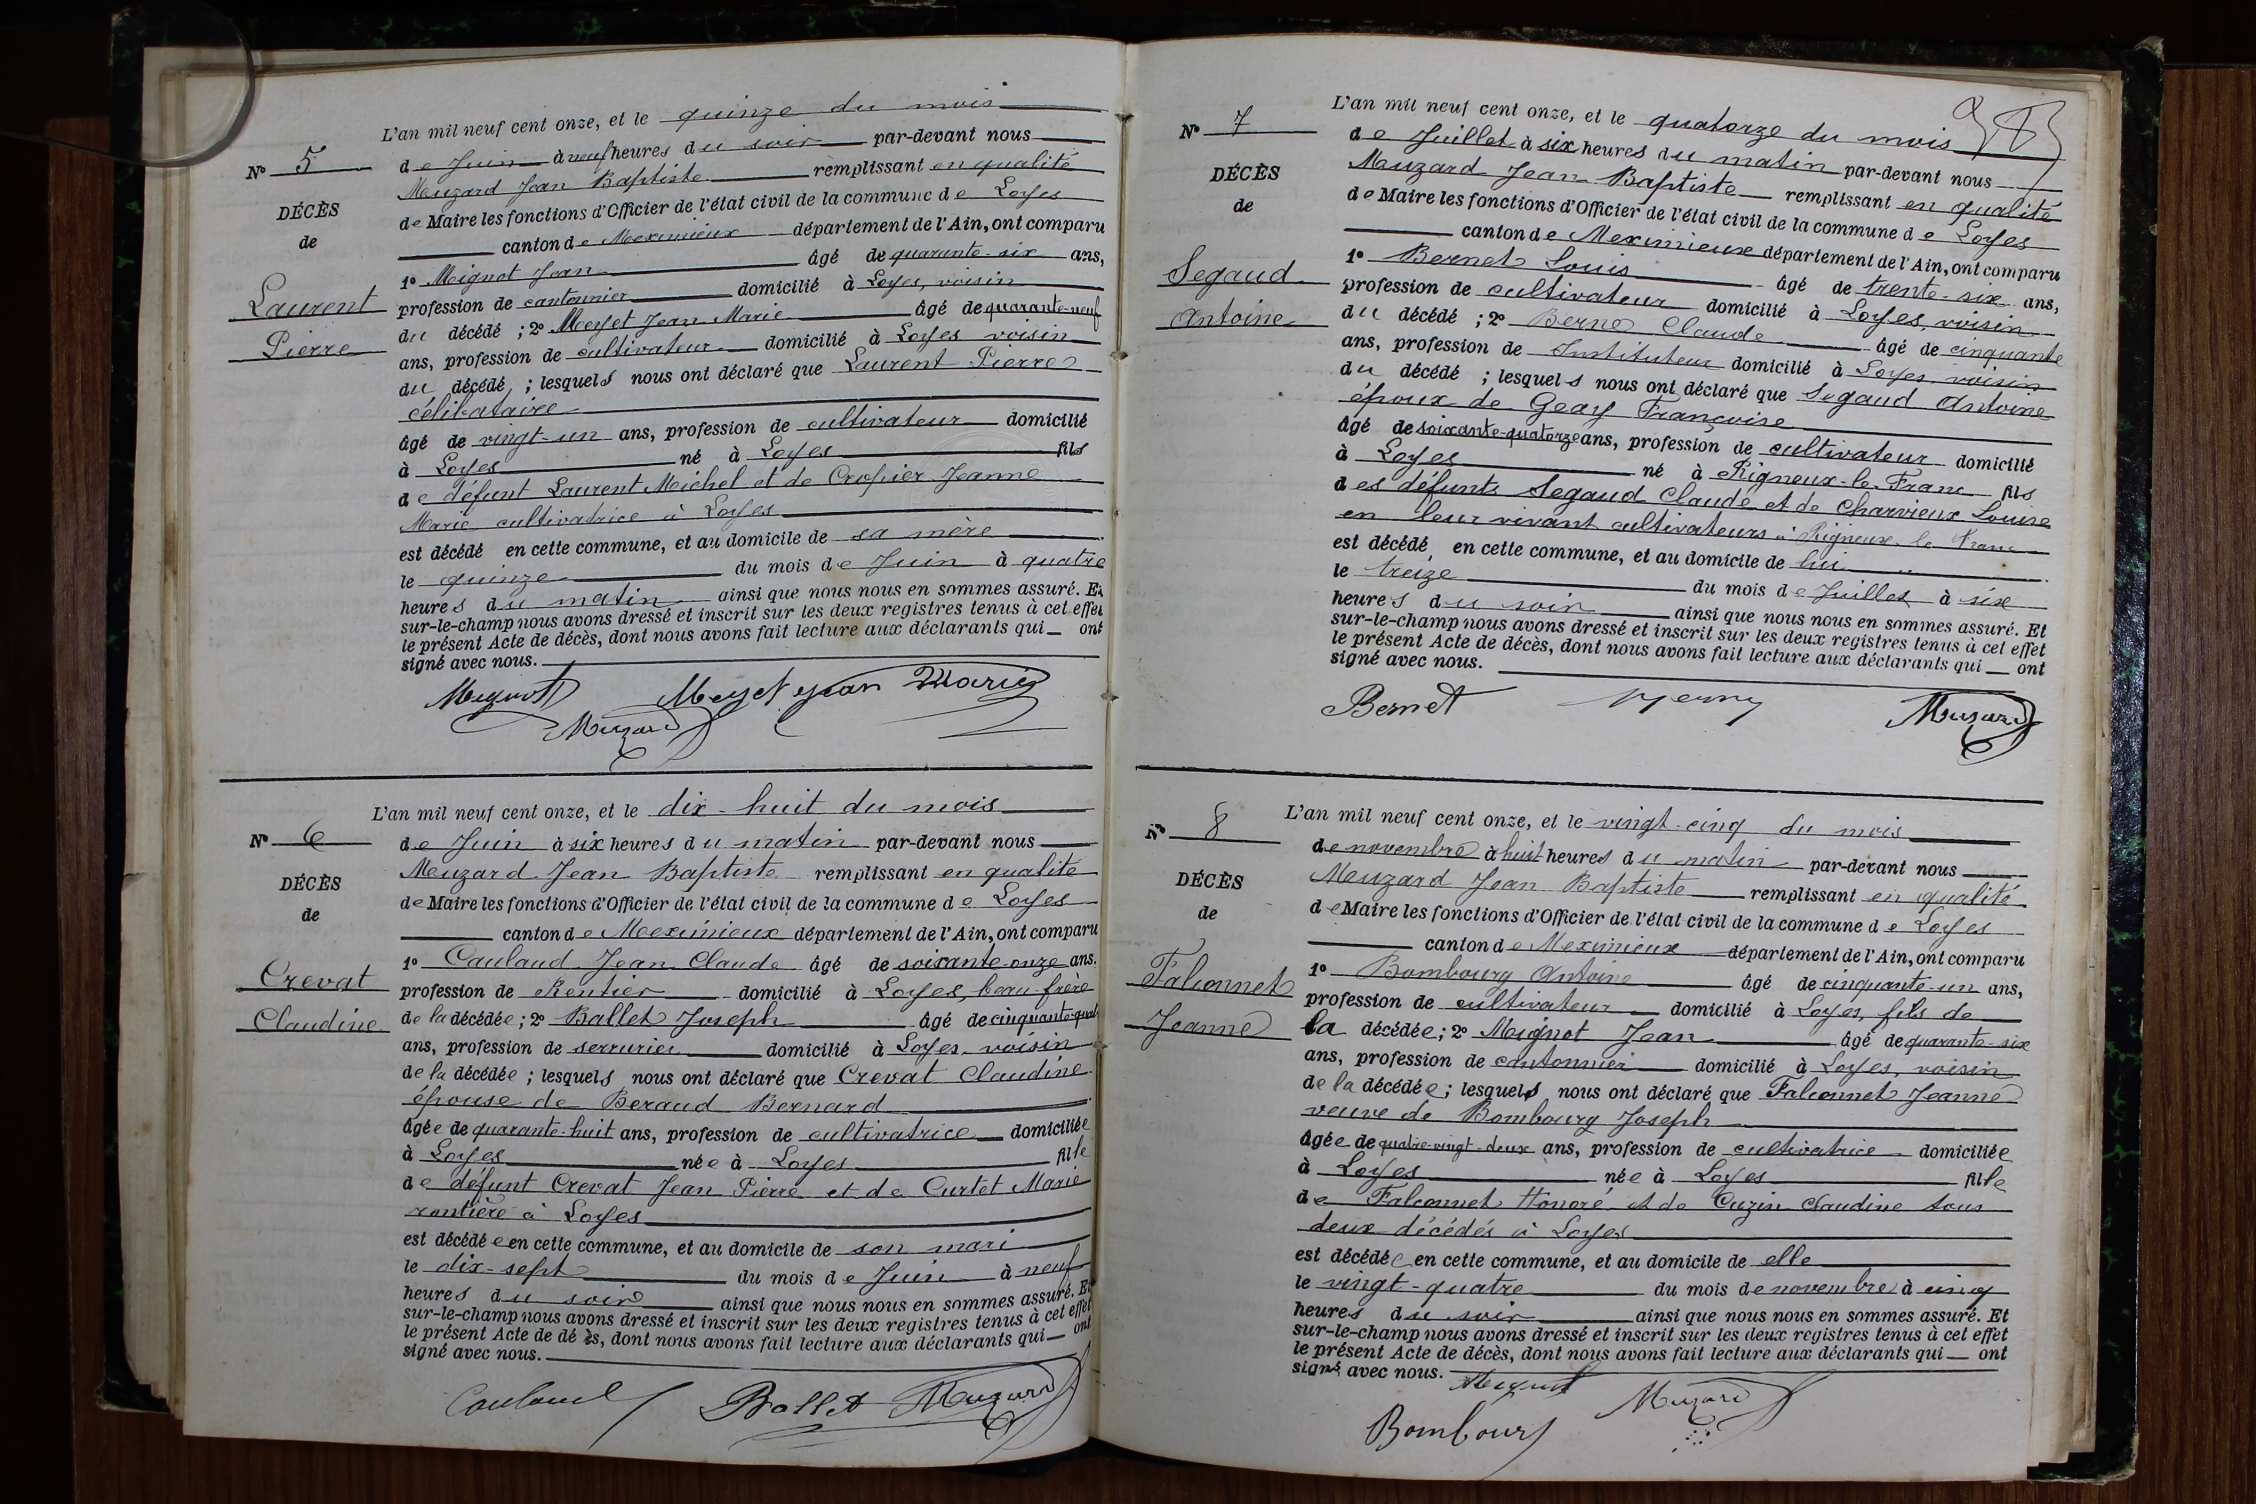 L'an mil neuf cent onze, et le quinze du mois
N° 5 de Juin à neuf heures du soir par-devant nous
Muzard Jean Baptiste remplissant en qualité
DÉCÈS
de Maire les fonctions d'Officier de l'état civil de la commune de Loyes
de
canton de Meximieux département de l'Ain, ont comparu
1° Mignot Jean âgé de quarante-six ans,
Laurent
profession de cantonnier domicilié à Loyes, voisin
du décédé ; 2° Meyset Jean Marie âgé de quarante-neuf
Pierre
ans, profession de cultivateur domicilié à Loyes voisin
du décédé ; lesquels nous ont déclaré que Laurent Pierre
célibataire
âgé de vingt-un ans, profession de cultivateur domicilié
à Loyes né à Loyes fils
de défunt Laurent Michel et de Cropier Jeanne
Marie cultivatrice à Loyes
est décédé en cette commune, et au domicile de sa mère
le quinze du mois de Juin à quatre
heures du matin ainsi que nous nous en sommes assuré. Et
sur-le-champ nous avons dressé et inscrit sur les deux registres tenus à cet effet
le présent Acte de décès, dont nous avons fait lecture aux déclarants qui ont
signé avec nous.
Mignot Meyset Jean Marie
Muzard
L'an mil neuf cent onze, et le dix-huit du mois
N° 6 de Juin à six heures du matin par-devant nous
Muzard Jean Baptiste remplissant en qualité
DÉCÈS
de Maire les fonctions d'Officier de l'état civil de la commune de Loyes
de
canton de Meximieux département de l'Ain, ont comparu
1° Caulaud Jean Claude âgé de soixante-onze ans.
Crevat
profession de Rentier domicilié à Loyes, beau-frère
Claudine
de la décédée ; 2° Ballet Joseph âgé de cinquante-quat
ans, profession de serrurier domicilié à Loyes voisin
de la décédée ; lesquels nous ont déclaré que Crevat Claudine
épouse de Beraud Bernard
âgée de quarante-huit ans, profession de cultivatrice domiciliée
à Loyes née à Loyes fille
de défunt Crevat Jean Pierre et de Curtet Marie
rentière à Loyes
est décédée en cette commune, et au domicile de son mari
le dix-sept du mois de Juin à neuf
heures du soir ainsi que nous nous en sommes assuré. Et
sur-le-champ nous avons dressé et inscrit sur les deux registres tenus à cet effet
le présent Acte de dé ès, dont nous avons fait lecture aux déclarants qui ont
signé avec nous.
Caulaud Ballet Muzard
L'an mil neuf cent onze, et le quatorze du mois
N° 7 de Juillet à six heures du matin par-devant nous
Muzard Jean Baptiste remplissant en qualité
DÉCÈS
de Maire les fonctions d'Officier de l'état civil de la commune de Loyes
de
canton de Meximieux département de l'Ain, ont comparu
1° Bernet Louis âgé de trente-six ans,
Segaud
profession de cultivateur domicilié à Loyes, voisin
Antoine
du décédé ; 2° Berne Claude âgé de cinquante
ans, profession de Instituteur domicilié à Loyes voisin
du décédé ; lesquels nous ont déclaré que Segaud Antoine
époux de Geay Françoise
âgé de soixante-quatorze ans, profession de cultivateur domicilié
à Loyes né à Rigneux-le-Franc fils
des défunts Segaud Claude et de Charvieux Louise
en leur vivant cultivateurs à Rigneux-le Franc
est décédé en cette commune, et au domicile de lui
le treize du mois de Juillet à six
heures du soir ainsi que nous nous en sommes assuré. Et
sur-le-champ nous avons dressé et inscrit sur les deux registres tenus à cet effet
le présent Acte de décès, dont nous avons fait lecture aux déclarants qui ont
signé avec nous.
Bernet Muzard
L'an mil neuf cent onze, et le vingt-cinq du mois
N° 8 de novembre à huit heures du matin par-devant nous
Muzard Jean Baptiste remplissant en qualité
DÉCÈS
de Maire les fonctions d'Officier de l'état civil de la commune de Loyes
de
canton de Meximieux département de l'Ain, ont comparu
1° Bombourg Antoine âgé de cinquante-un ans,
Falconnet
profession de cultivateur domicilié à Loyes, fils de
Jeanne
la décédée ; 2° Mignot Jean âgé de quarante-six
ans, profession de cantonnier domicilié à Loyes, voisin
de la décédée ; lesquels nous ont déclaré que Falconnet Jeanne
veuve de Bombourg Joseph
âgée de quatre-vingt-deux ans, profession de cultivatrice domiciliée
à Loyes née à Loyes fille
de Falconnet Honoré et de Cuzin Claudine tous
deux décédés à Loyes
est décédée en cette commune, et au domicile de elle
le vingt-quatre du mois de novembre à cinq
heures du soir ainsi que nous nous en sommes assuré. Et
sur-le-champ nous avons dressé et inscrit sur les deux registres tenus à cet effet
le présent Acte de décès, dont nous avons fait lecture aux déclarants qui ont
signé avec nous.
Mignot Muzard
Bombourg